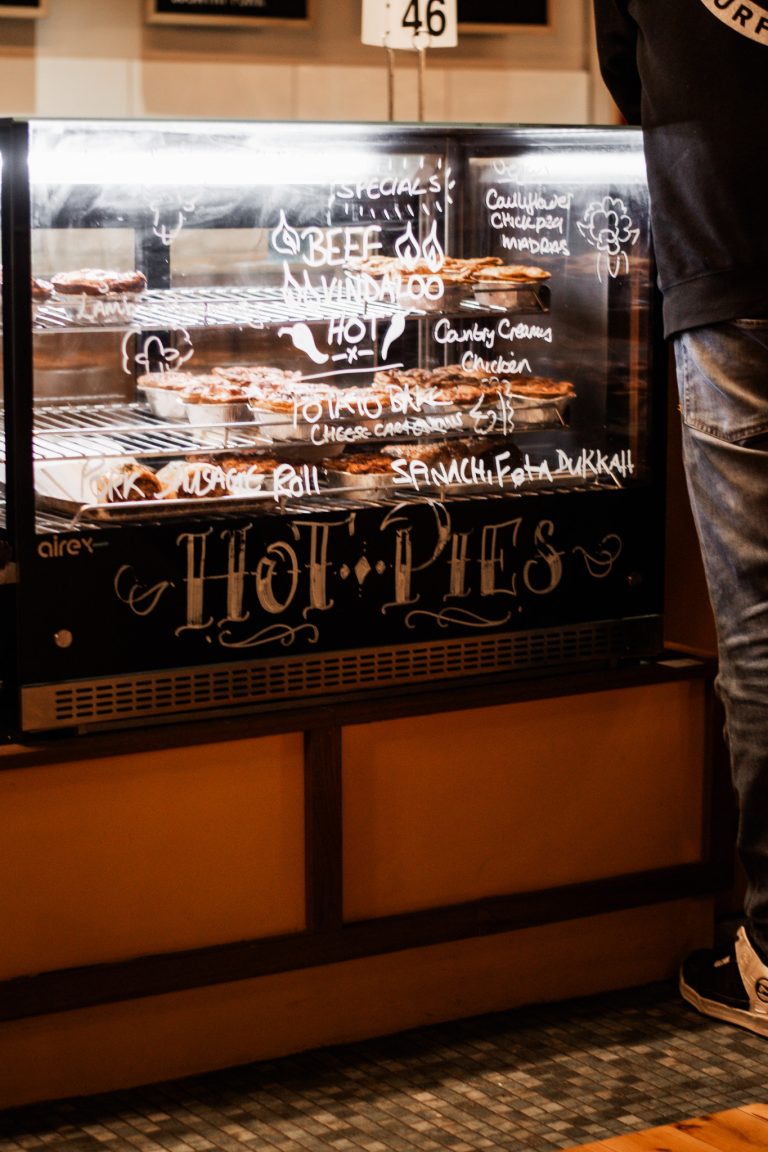 46
URF
SPECIALS
BEEF
VINDALOO
HOT
Cauliflower
Chickpea
MADRAS
Lamb
Country Creamy
Chicken
POTATO BAKE
CHEESE
PORK SAUSAGE ROLL
SPANACHI, Feta DUKKAH
airex
HOT PIES